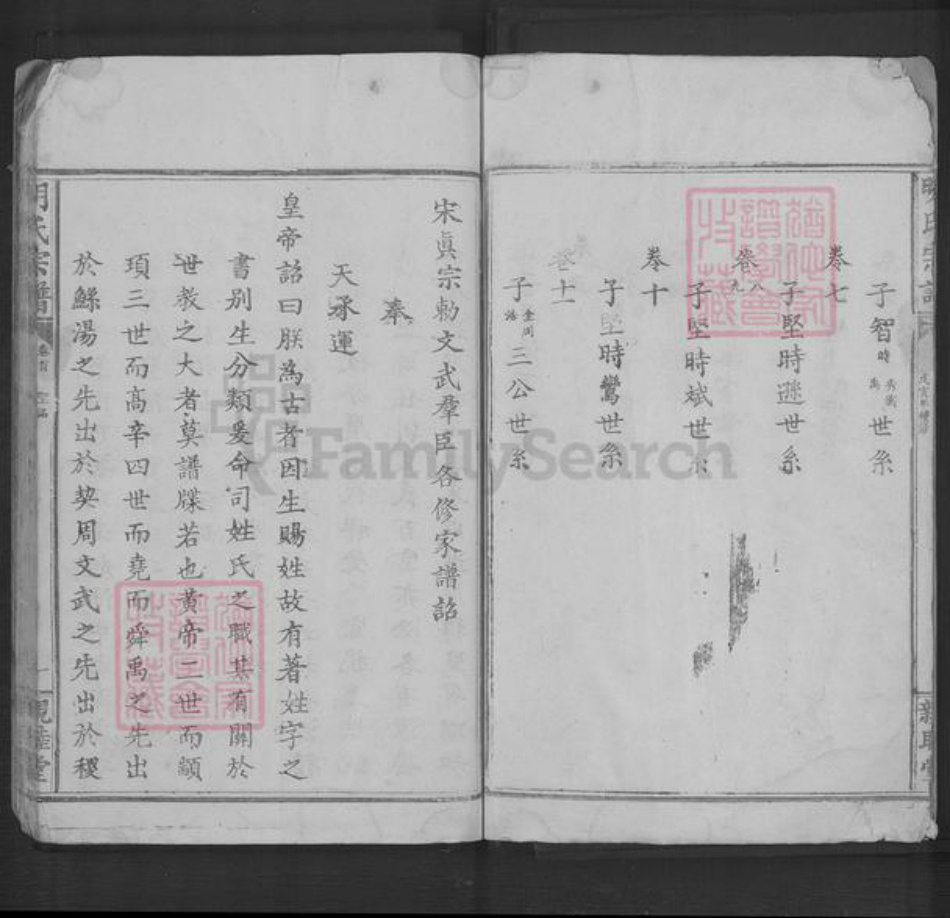 卷七
子智時 世系
子堅時遜世系
卷八
卷九
子堅時斌世系
卷十
子堅時鸞世系
卷十一
子 三公世系
宋真宗勅文武羣臣各修家譜詔
奉
天承運
皇帝詔曰朕為古者因生賜姓故有著姓字之
書別生分類爰命司姓氏之職其有關於
世教之大者莫譜牒若也黄帝二世而顓
頊三世而高辛四世而堯而舜禹之先出
於鯀湯之先出於契周文武之先出於稷
氏宗譜
卷首
親睦堂
FamilySearch